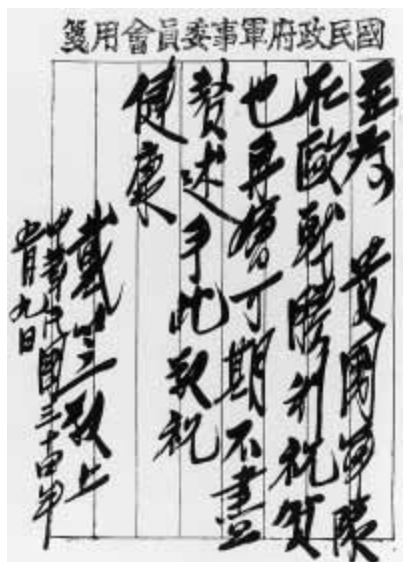 國民政府軍事委員會用箋
並為 貴國軍隊
在歐戰勝利祝賀
也再會可期不盡
贅述手此敬祝
健康
戴笠敬上
中華民國三十四年
五月九日